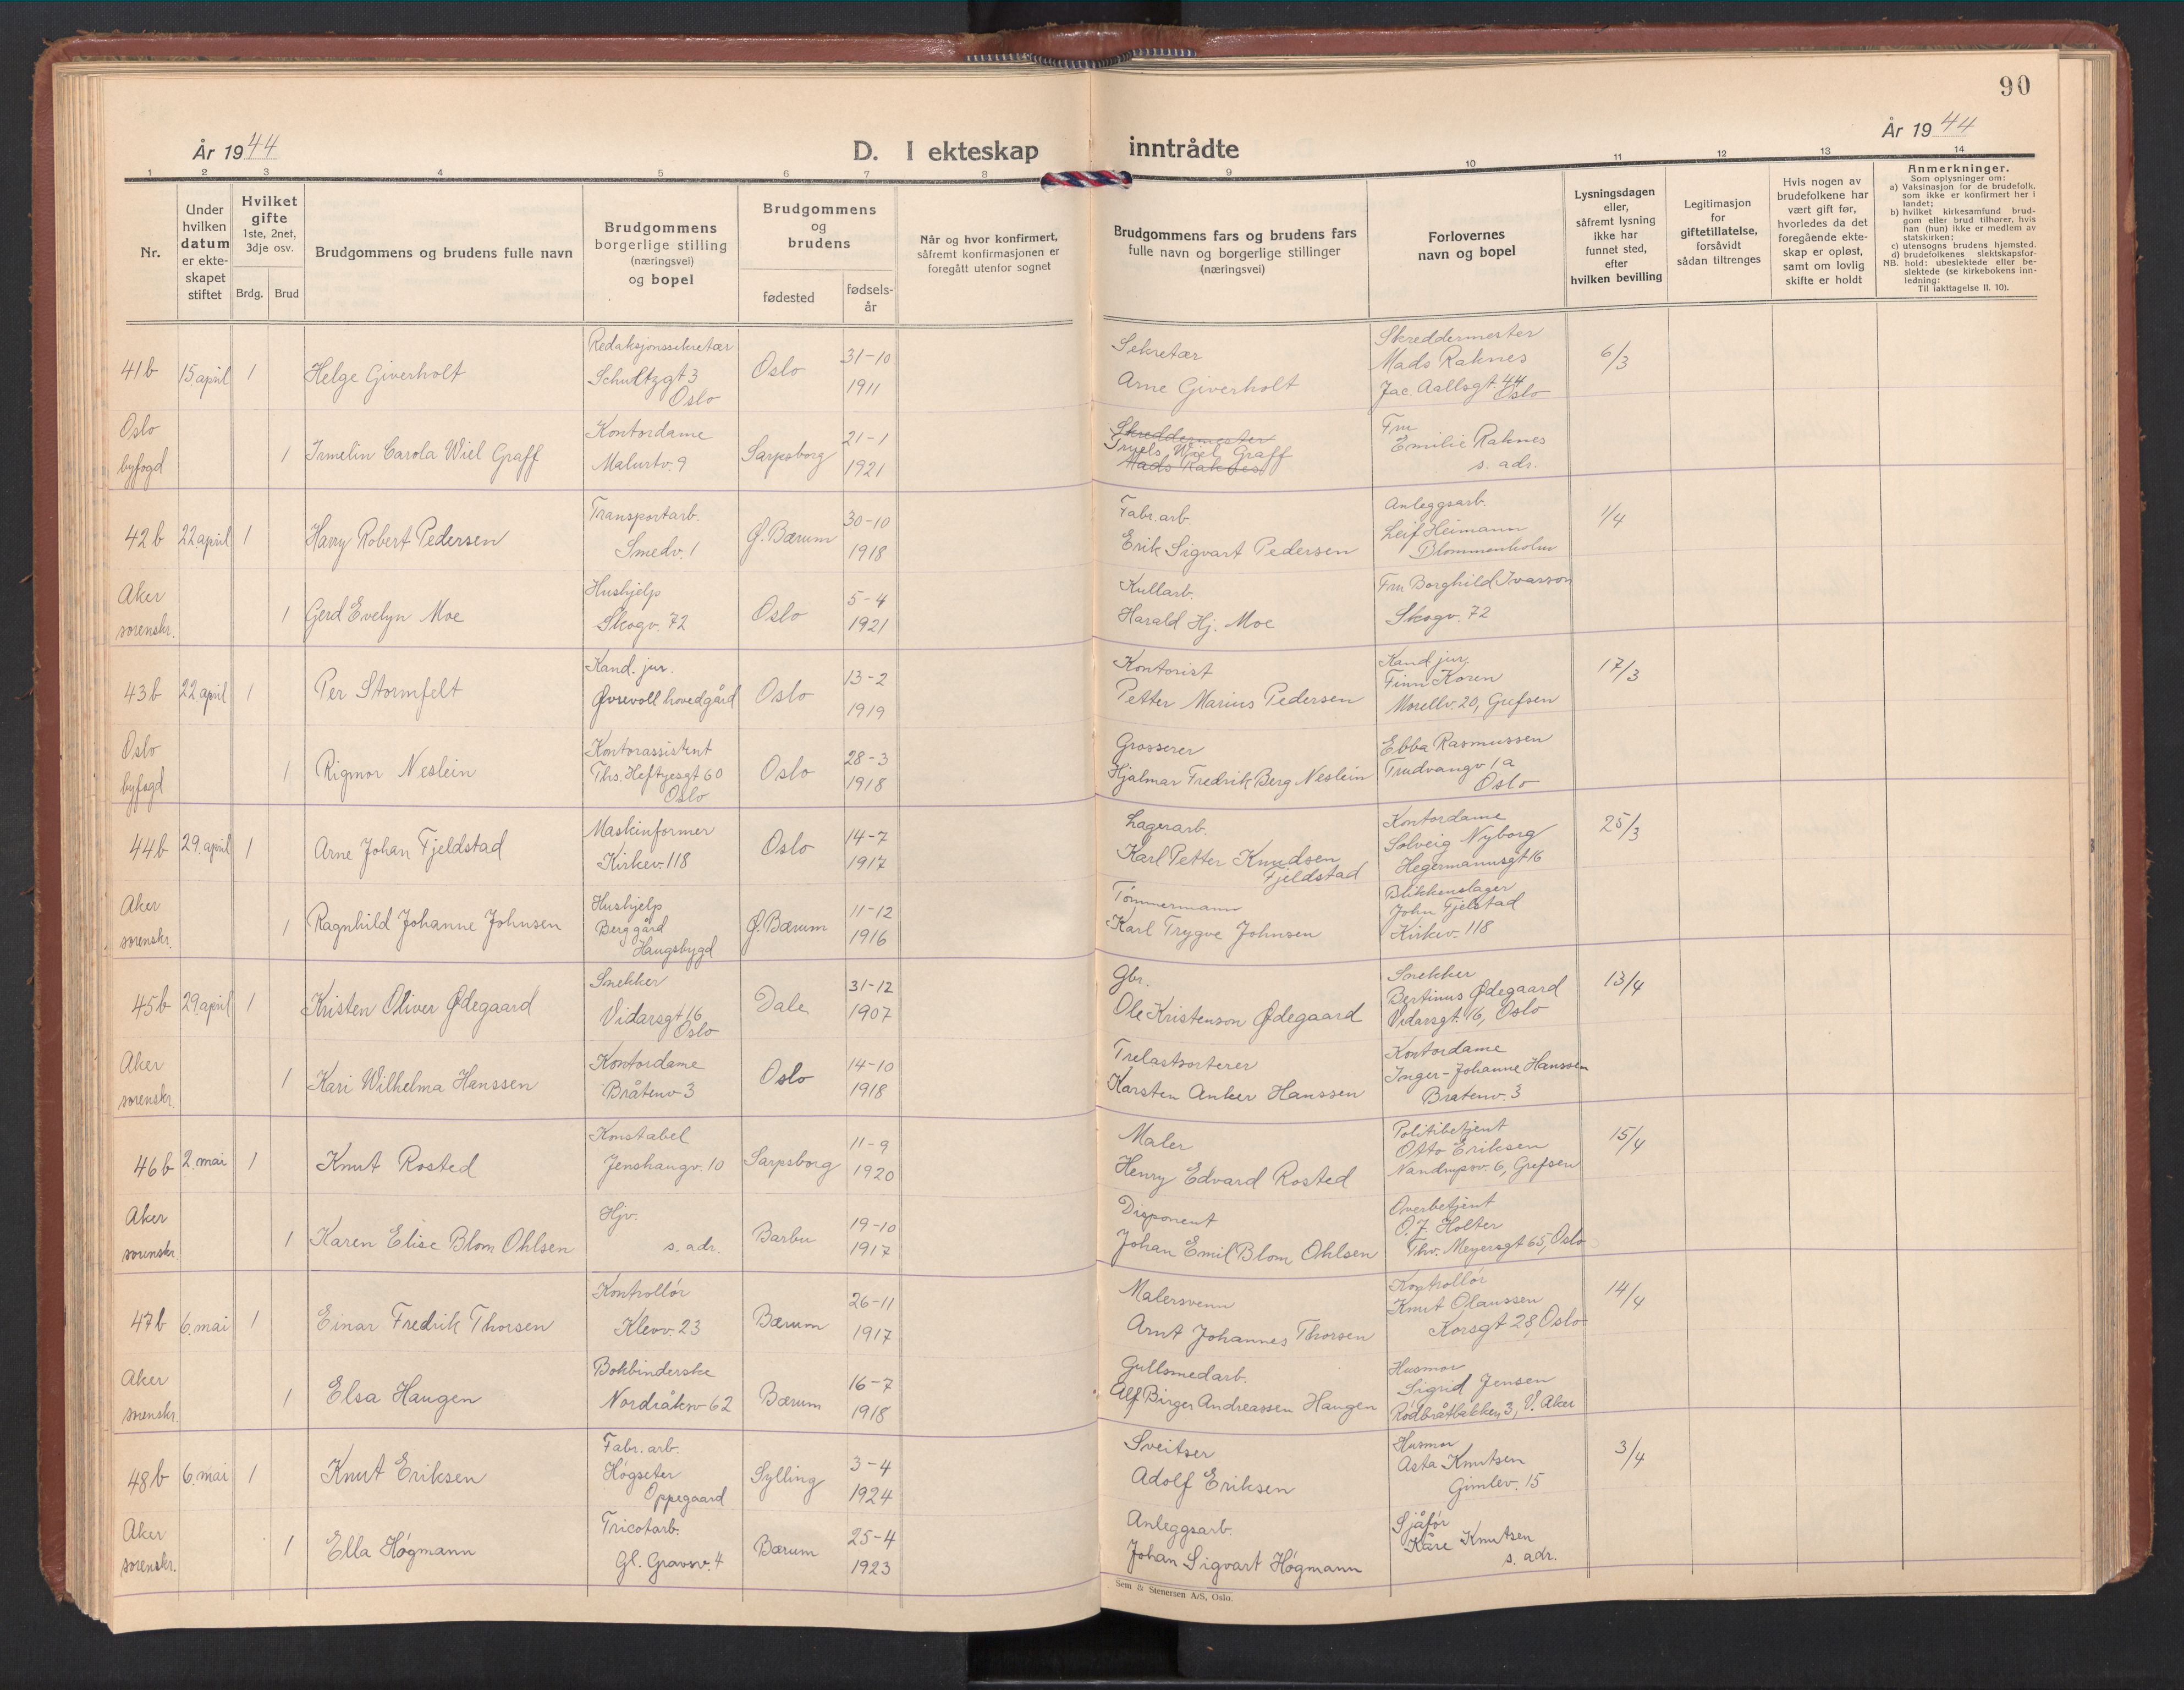 90
År 1944
D. I ekteskap inntrådte
År 1944
1 2 3 4 5 6 7 8 9 10 11 12 13 14
Nr.
Under hvilken datum er ekte-skapet stiftet
Hvilket gifte 1ste, 2net, 3dje osv.
Brdg. Brud
Brudgommens og brudens fulle navn
Brudgommens borgerlige stilling (næringsvei) og bopel
Brudgommens og brudens
fødested
fødsels-år
Når og hvor konfirmert, såfremt konfirmasjonen er foregått utenfor sognet
Brudgommens fars og brudens fars fulle navn og borgerlige stillinger (næringsvei)
Forlovernes navn og bopel
Lysningsdagen eller, såfremt lysning ikke har funnet sted, efter hvilken bevilling
Legitimasjon for giftetillatelse, forsåvidt sådan tiltrenges
Hvis nogen av brudefolkene har vært gift før, hvorledes da det foregående ekte-skap er opløst, samt om lovlig skifte er holdt
Anmerkninger.
Som oplysninger om:
a) Vaksinasjon for de brudefolk, som ikke er konfirmert her i landet;
b) hvilket kirkesamfund brud-gom eller brud tilhører, hvis han (hun) ikke er medlem av statskirken;
c) utensogns brudens hjemsted.
d) brudefolkenes slektskapsfor-hold: ubeslektede eller be-slektede (se kirkebokens inn-ledning:
NB.
Til iakttagelse II. 10).
41b 15.april 1 Helge Giverholt
Redaksjonssekretær
Schultzgt 3
Oslo
Oslo
31-10
1911
Sekretær
Arne Giverholt
Skreddermester
Mads Raknes
Jac. Aallsgt. 44
Oslo
6/3
Oslo
byfogd
1 Irmelin Carola Wiel Graff
Kontordame
Malurtv. 9
Sarpsborg
21-1
1921
Skreddermester
Truels Wiel Graff
Mads Raknes
Fru
Emilie Raknes
s. adr.
42b 22april 1 Harry Robert Pedersen
Transportarb.
Smedv. 1
Ø. Bærum
30-10
1918
Fabr. arb.
Erik Sigvart Pedersen
Anleggsarb.
Leif Heimann
Blommenholm
1/4
Aker
sorenskr.
1 Gerd Evelyn Moe
Hushjelp
Skogv. 72
Oslo
5-4
1921
Kullarb.
Harald Hj. Moe
Fru Borghild Ivarsson
Skogv. 72
43b 22.april 1 Per Stormfelt
Kand. jur.
Øvrevoll hovedgård
Oslo
13-2
1919
Kontorist
Petter Marius Pedersen
Kand. jur.
Finn Koren
Morellv. 20, Grefsen
17/3
Oslo
byfogd
1 Rigmor Neslein
Kontorassistent
Ths. Heftyesgt 60
Oslo
Oslo
28-3
1918
Grosserer
Hjalmar Fredrik Berg Neslein
Ebba Rasmussen
Trudvangv 1a
Oslo
44b 29.april 1 Arne Johan Fjeldstad
Maskinformer
Kirkev. 118
Oslo
14-7
1917
Lagerarb.
Karl Petter Knudsen
Fjeldstad
Kontordame
Solveig Nyborg
Hegermannsgt 16
25/3
Aker
sorenskr.
1 Ragnhild Johanne Johnsen
Hushjelp
Berg gård
Haugsbygd
Ø. Bærum
11-12
1916
Tømmermann
Karl Trygve Johnsen
Blikkenslager
John Fjelstad
Kirkev. 118
45b 29.april 1 Kristen Oliver Ødegaard
Snekker
Vidarsgt 16
Oslo
Dale
31-12
1907
Gbr.
Ole Kristenson Ødegaard
Snekker
Bertinus Ødegaard
Vidarsgt. 16, Oslo
13/4
Aker
sorenskr.
1 Kari Wilhelma Hanssen
Kontordame
Bråtenv 3
Oslo
14-10
1918
Trelastsorterer
Karsten Anker Hanssen
Kontordame
Inger-Johanne Hanssen
Bråtenv. 3
46b 2. mai 1 Knut Rosted
Konstabel
Jenshaugv. 10
Sarpsborg
11-9
1920
Maler
Henry Edvard Rosted
Politibetjent
Otto Eriksen
Nandrupsv. 6, Grefsen
15/4
Aker
sorenskr.
1 Karen Elise Blom Ohlsen
Hjv.
s. adr.
Barbu
19-10
1917
Disponent
Johan Emil Blom Ohlsen
Overbetjent
O. J. Holter
Thv. Meyersgt 65, Oslo
47b 6. mai 1 Einar Fredrik Thorsen
Kontrollør
Klevv. 23
Bærum
26-11
1917
Malersvenn
Arnt Johannes Thorsen
Kontrollør
Knut Olaussen
Korsgt 28, Oslo
14/4
Aker
sorenskr.
1 Elsa Haugen
Bokbinderske
Nordråkv 62
Bærum
16-7
1918
Gullsmedarb.
Alf Birger Andreassen Haugen
Husmor
Sigrid Jensen
Rødbråtbakken 3, V. Aker
48b 6. mai 1 Knut Eriksen
Fabr. arb.
Høgseter
Oppegaard
Sylling
3-4
1924
Sveitser
Adolf Eriksen
Husmor
Asta Knutsen
Gimlev. 15
3/4
Aker
sorenskr.
1 Ella Høgmann
Tricotarb.
Gl. Gravsv. 4
Bærum
25-4
1923
Anleggsarb.
Johan Sigvart Høgmann
Sjåfør
Kåre Knutsen
s. adr.
Sem & Stenersen A/S, Oslo.